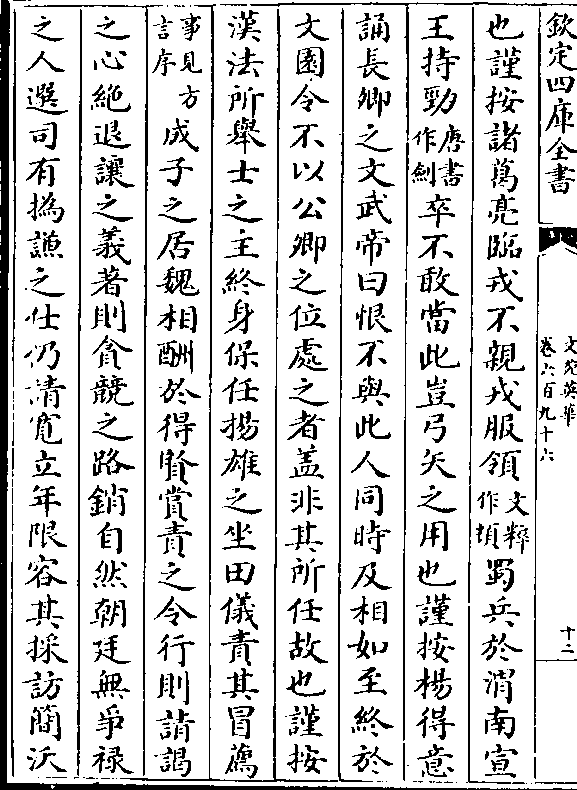 欽定四庫全書
文苑英華
卷六百九十六
十二
也謹按諸葛亮臨戎不親戎服領文粹作頓蜀兵於渭南宣
王持勁唐書作劍卒不敢當此豈弓矢之用也謹按楊得意
誦長卿之文武帝曰恨不與此人同時及相如至終於
文園令不以公卿之位處之者盖非其所任故也謹按
漢法所舉士之主終身保任揚雄之坐田儀責其冒薦
事見方言序成子之居魏相酬於得賢賞責之令行則請謁
之心絶退讓之義著則貪競之路銷自然朝廷無爭禄
之人選司有撝謙之仕仍請寛立年限容其採訪簡汰